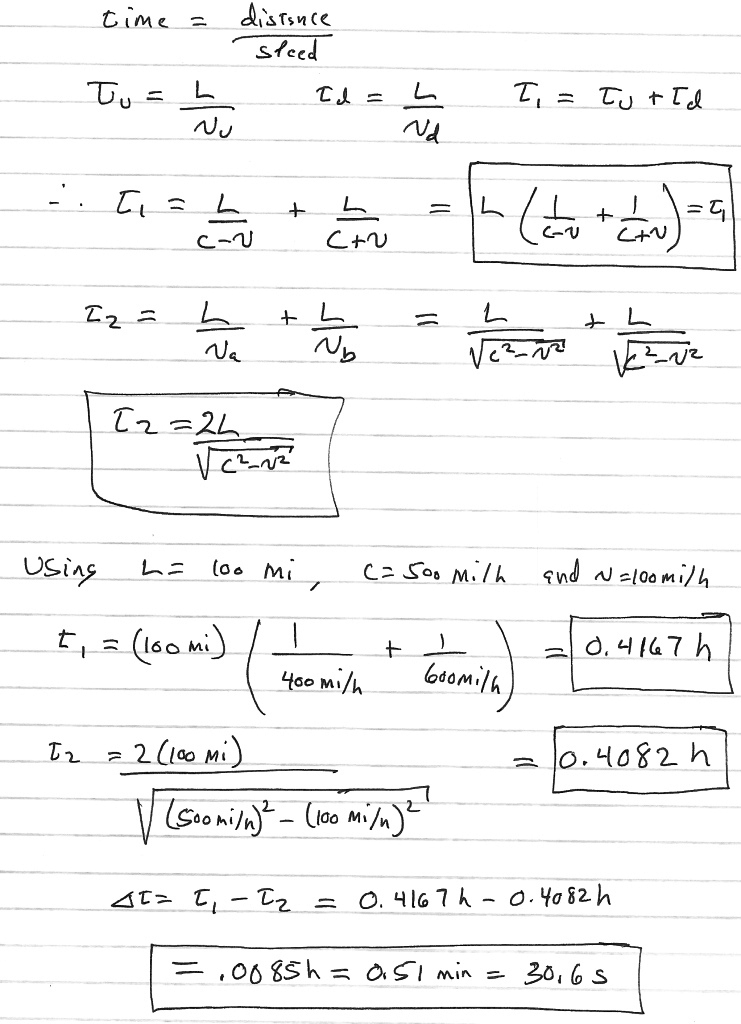 time = distance / speed
t_u = L / v_u    t_d = L / v_d    t_1 = t_u + t_d
∴ t_1 = L / (c-v) + L / (c+v) = L (1 / (c-v) + 1 / (c+v)) = t_1
t_2 = L / v_a + L / v_b = L / √(c²-v²) + L / √(c²-v²)
t_2 = 2L / √(c²-v²)
Using L = 100 mi, c = 500 mi/h and v = 100 mi/h
t_1 = (100 mi) (1 / 400 mi/h + 1 / 600 mi/h) = 0.4167 h
t_2 = 2 (100 mi) / √((500 mi/h)² - (100 mi/h)²) = 0.4082 h
Δt = t_1 - t_2 = 0.4167 h - 0.4082 h
= .0085 h = 0.51 min = 30.6 s